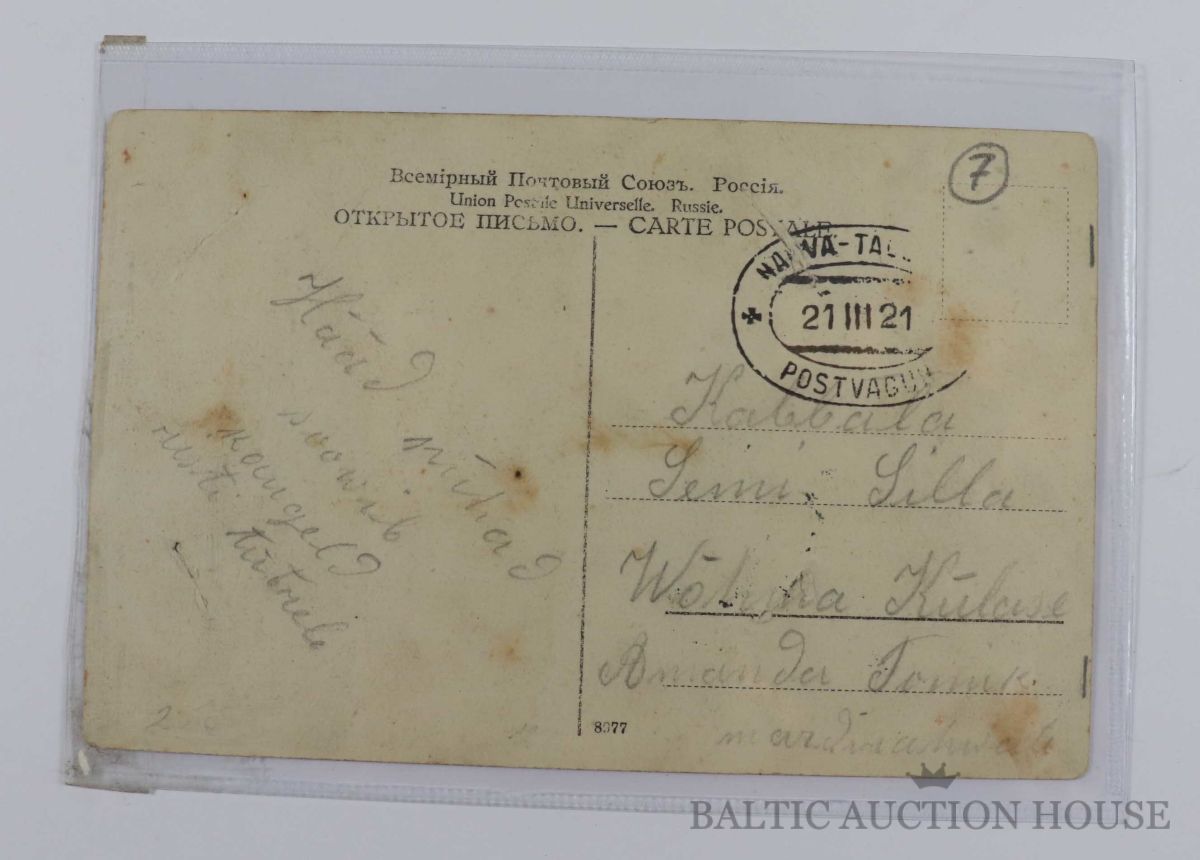 7
Всемірный Почтовый Союзъ. Россія.
Union Postale Universelle. Russie.
ОТКРЫТОЕ ПИСЬМО. — CARTE POSTALE.
NARVA-TAL
21 III 21
POSTVAGUN
Hääd
pühad
soowib
kaugelt
Kabbala
Semi Silla
Külase
Amanda Tomik
8977
BALTIC AUCTION HOUSE